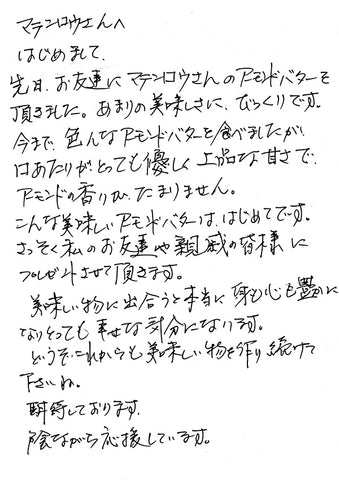 マテンロウさんへ
はじめまして、
先日、お友達にマテンロウさんのアーモンドバターを
頂きました。あまりの美味しさに、びっくりです。
今まで、色んなアーモンドバターを食べましたが、
口あたりが、とっても優しく上品な甘さで、
アーモンドの香りが、たまりません。
こんな美味しいアーモンドバターは、はじめてです。
さっそく私のお友達や親戚の皆様に
プレゼントさせて頂きます。
美味しい物に出合うと本当に身も心も豊かに
なりとっても幸せな気分になります。
どうぞ、これからも美味しい物を作り続けて
下さいね。
期待しております。
陰ながら応援しています。